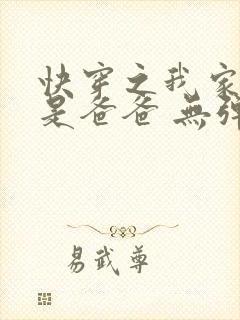 快穿之我家
是爸爸 無彈
易武尊